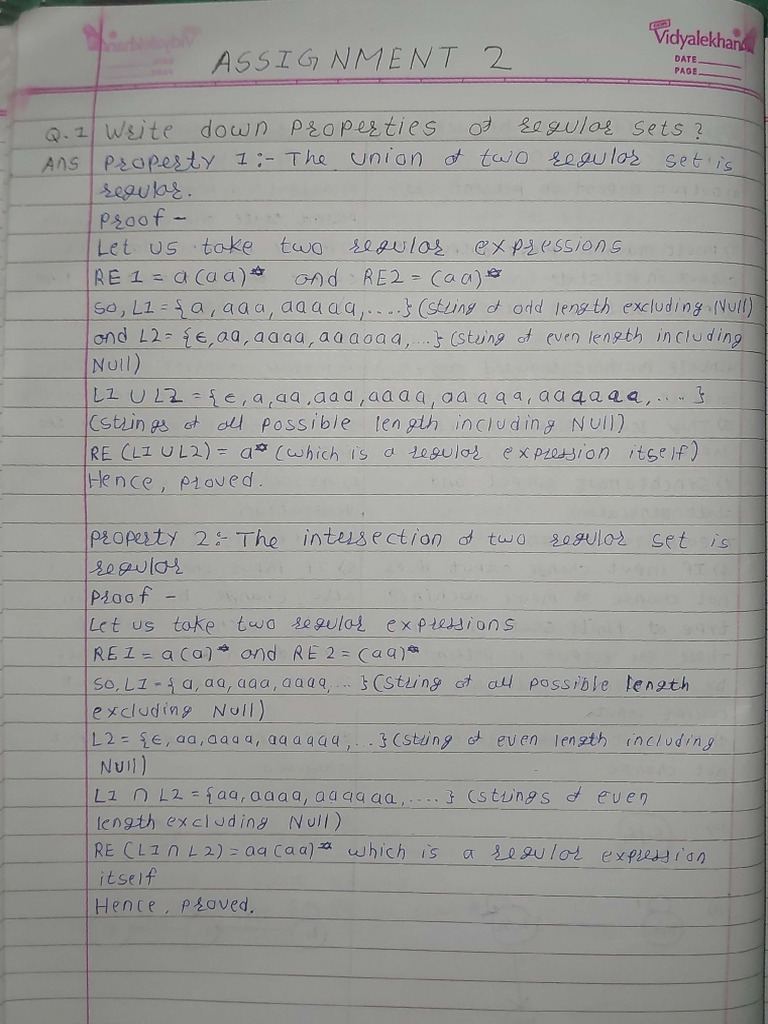 Vidyalekhan
DATE
PAGE
ASSIGNMENT 2
Q.1 Write down properties of regular sets?
Ans Property 1:- The union of two regular set is
regular.
Proof -
Let us take two regular expressions
RE 1 = a(aa)* and RE2 = (aa)*
So, L1 = {a, aaa, aaaaa, .....} (string of odd length excluding Null)
and L2= {ε, aa, aaaa, aaaaaa, ...} (string of even length including
Null)
L1 ∪ L2 = {ε, a, aa, aaa, aaaa, aaaaa, aaaaaa, .... }
(strings of all possible length including Null)
RE (L1 ∪ L2) = a* (which is a regular expression itself)
Hence, proved.
Property 2:- The intersection of two regular set is
regular
Proof -
Let us take two regular expressions
RE 1 = a(a)* and RE 2 = (aa)*
So, L1 = {a, aa, aaa, aaaa, ... } (string of all possible length
excluding Null)
L2 = {ε, aa, aaaa, aaaaaa, ...} (string of even length including
Null)
L1 ∩ L2 = {aa, aaaa, aaaaaa, .....} (strings of even
length excluding Null)
RE (L1 ∩ L2) = aa(aa)* which is a regular expression
itself
Hence, proved.